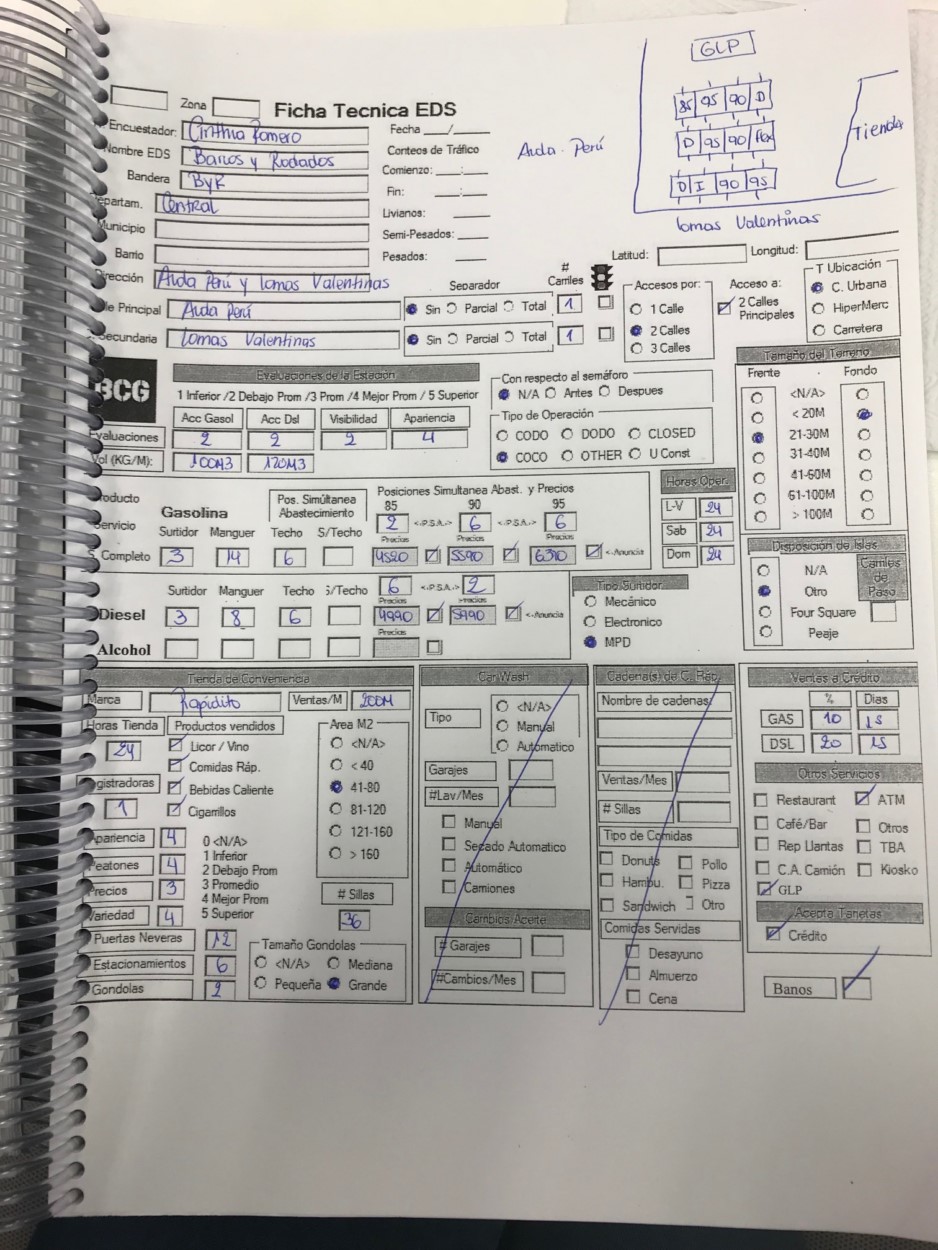 GLP
85 95 90 D
D 95 90
D I 90 95
Tienda
Avda. Perú
lomas Valentinas
Zona
Ficha Tecnica EDS
Encuestador: Cinthia Romero
Nombre EDS Barios y Rodados
Bandera ByR
epartam. Central
Municipio
Barrio
irección Avda Perú y lomas Valentinas
le Principal Avda Perú
Secundaria Lomas Valentinas
Fecha ___/___
Conteos de Tráfico
Comienzo: __:__
Fin: __:__
Livianos:
Semi-Pesados:
Pesados:
Latitud: Longitud:
Separador
# Carriles
Sin Parcial Total 1
Sin Parcial Total 1
Accesos por:
1 Calle
2 Calles
3 Calles
Acceso a:
2 Calles Principales
T Ubicación
C. Urbana
HiperMerc
Carretera
BCG
Evaluaciones de la Estación
1 Inferior /2 Debajo Prom /3 Prom /4 Mejor Prom / 5 Superior
Acc Gasol Acc Dsl Visibilidad Apariencia
valuaciones 2 2 2 4
Vol (KG/M): 100M3 120M3
Con respecto al semáforo
N/A Antes Despues
Tipo de Operación
CODO DODO CLOSED
COCO OTHER U Const
Tamaño del Terreno
Frente Fondo
<N/A>
< 20M
21-30M
31-40M
41-60M
61-100M
> 100M
roducto
Servicio
Gasolina
Pos. Simúltanea Abastecimiento
Posiciones Simultanea Abast. y Precios
85 90 95
2 <.P.S.A.> 6 <.P.S.A.> 6
Surtidor Manguer Techo S/Techo
Precios Precios Precios
S. Completo 3 14 6 4520 5590 6310 <-Anuncia
Horas Oper.
L-V 24
Sab 24
Dom 24
Surtidor Manguer Techo S/Techo
6 <.P.S.A.> 2
Precios Precios
Diesel 3 8 6 4990 5990 <-Anuncia
Precios
Alcohol
Tipo Surtidor
Mecánico
Electronico
MPD
Disposición de Islas
N/A
Otro
Four Square
Peaje
Carriles de Paso
Tienda de Conveniencia
Marca Rapidito Ventas/M 200M
Horas Tienda 24
Productos vendidos
Licor / Vino
Comidas Ráp.
Bebidas Caliente
Cigarrillos
egistradoras 1
Area M2
<N/A>
< 40
41-80
81-120
121-160
> 160
Apariencia 4
Peatones 4
Precios 3
Variedad 4
0 <N/A>
1 Inferior
2 Debajo Prom
3 Promedio
4 Mejor Prom
5 Superior
# Sillas
36
Puertas Neveras 12
Estacionamientos 6
Gondolas 2
Tamaño Gondolas
<N/A> Mediana
Pequeña Grande
Car Wash
Tipo
<N/A>
Manual
Automatico
Garajes
#Lav/Mes
Manual
Secado Automatico
Automático
Camiones
Cambios Aceite
# Garajes
#Cambios/Mes
Cadena(s) de C. Ráp.
Nombre de cadenas:
Ventas/Mes
# Sillas
Tipo de Comidas
Donuts Pollo
Hambu. Pizza
Sandwich Otro
Comidas Servidas
Desayuno
Almuerzo
Cena
Ventas a Crédito
% Dias
GAS 10 15
DSL 20 15
Otros Servicios
Restaurant ATM
Café/Bar Otros
Rep Llantas TBA
C.A. Camión Kiosko
GLP
Acepta Tarjetas
Crédito
Banos